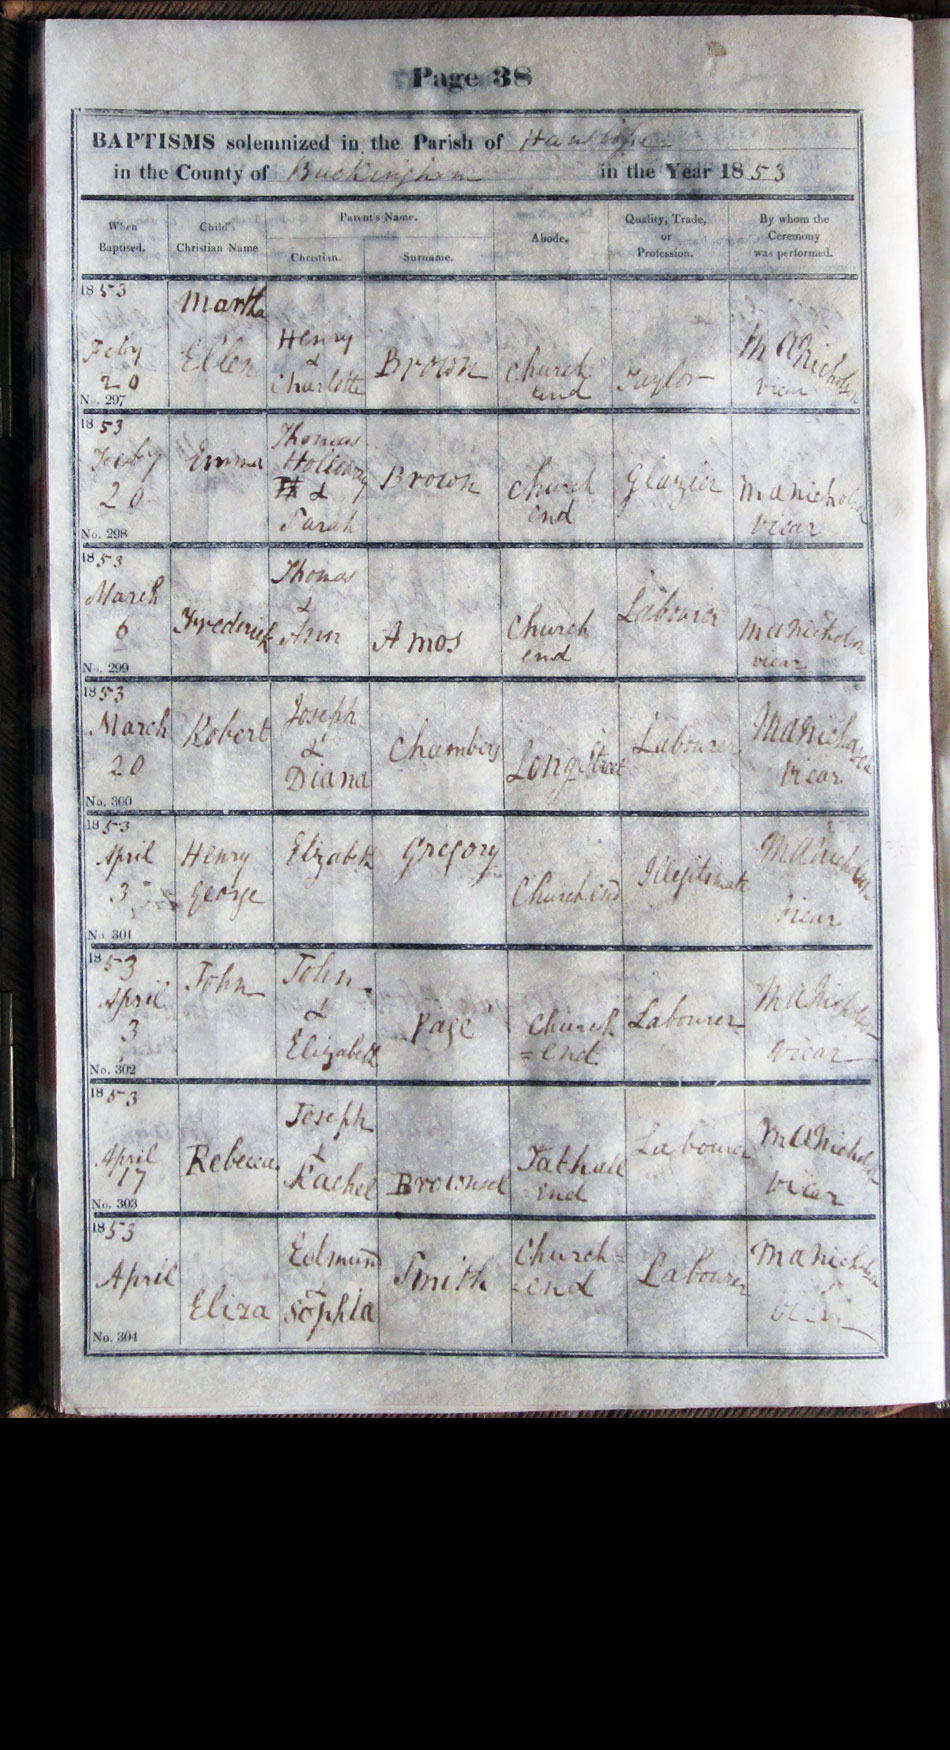 Page 38
BAPTISMS solemnized in the Parish of Hanslope
in the County of Buckingham in the Year 1853
When Baptised. Child's Christian Name Parent's Name. Christian. Surname. Abode. Quality, Trade, or Profession. By whom the Ceremony was performed.
1853
Martha
Feby Ellen Henry & Charlotte Brown Church end Taylor M A Nicholson vicar
20
No. 297
1853
Feby Emma Thomas Holloway & Sarah Brown Church end Glazier M A Nicholson vicar
20
No. 298
1853
March Frederick Thomas & Ann Amos Church end Labourer M A Nicholson vicar
6
No. 299
1853
March Robert Joseph & Diana Chambers Long Street Labourer M A Nicholson vicar
20
No. 300
1853
April Henry Elizabeth Gregory Church end Illegitimate M A Nicholson vicar
3 George
No. 301
1853
April John John & Elizabeth Page Church = end Labourer M A Nicholson vicar
3
No. 302
1853
April Rebecca Joseph & Rachel Brownsel Tathall End Labourer M A Nicholson vicar
17
No. 303
1853
April Eliza Edmund & Sophia Smith Church = = end Labourer M A Nicholson vicar
No. 304